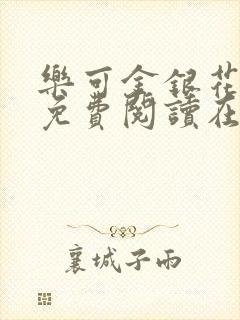 樂可金銀花
免費閱讀在
襄城子雨